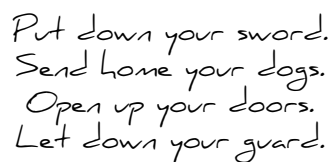 Put down your sword.
Send home your dogs.
Open up your doors.
Let down your guard.